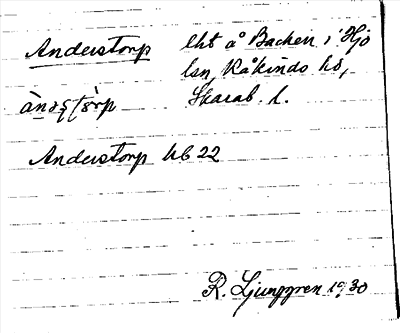 Anderstorp lht å Backen i Hjo
lsn, Kåkinds hd,
Skarab. l.
Anderstorp Ub 22
R. Ljunggren 1930